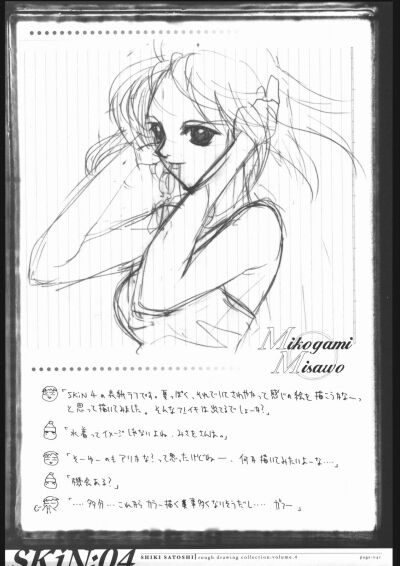 Mikogami
Misawo
「SKiN4の表紙ラフです。夏っぽく、それでいてさわやかって感じの絵を描こうかなーっ
と思って描いてみました。そんなフンイキは出てるでしょーか?」
「水着ってイメージじゃないよね、みさをさんは。」
「そーゆーのもアリかな!って思ったけどねー、何か描いてみたいよーな…」
「機会ある?」
「…多分…これから カラー描く事多くなりそうだし……
SKiN:04
SHIKI SATOSHI rough drawing collection:volume.4